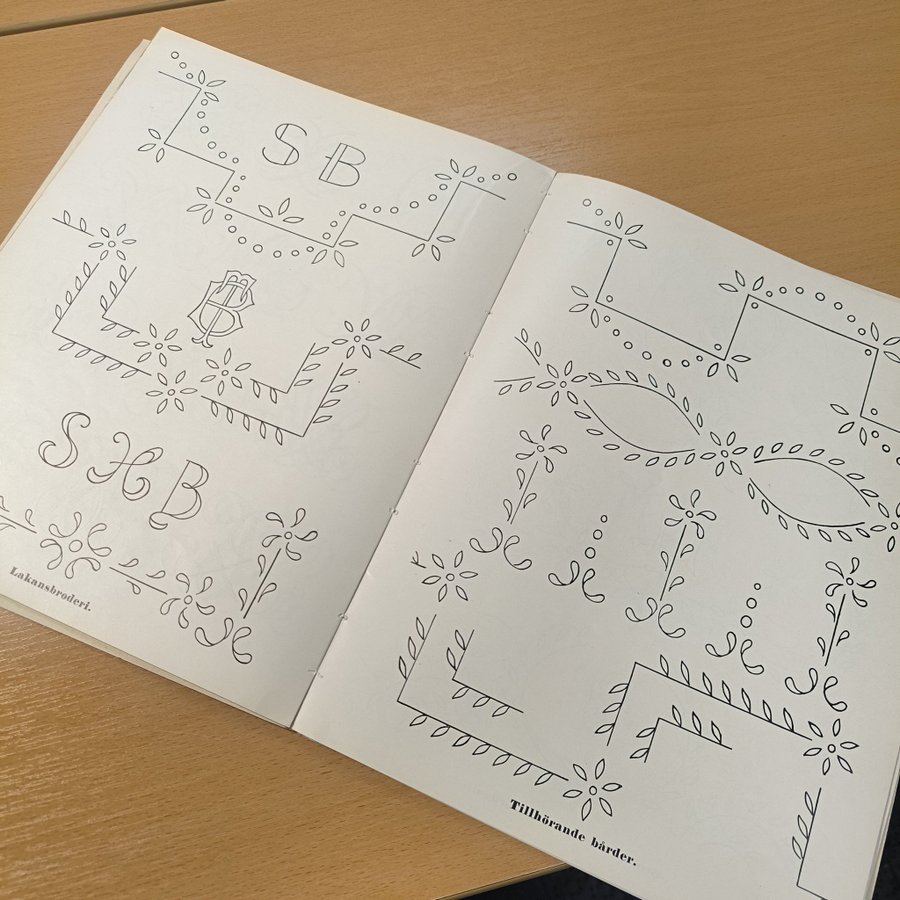 SB
SHB
Lakansbroderi.
Tillhörande bårder.